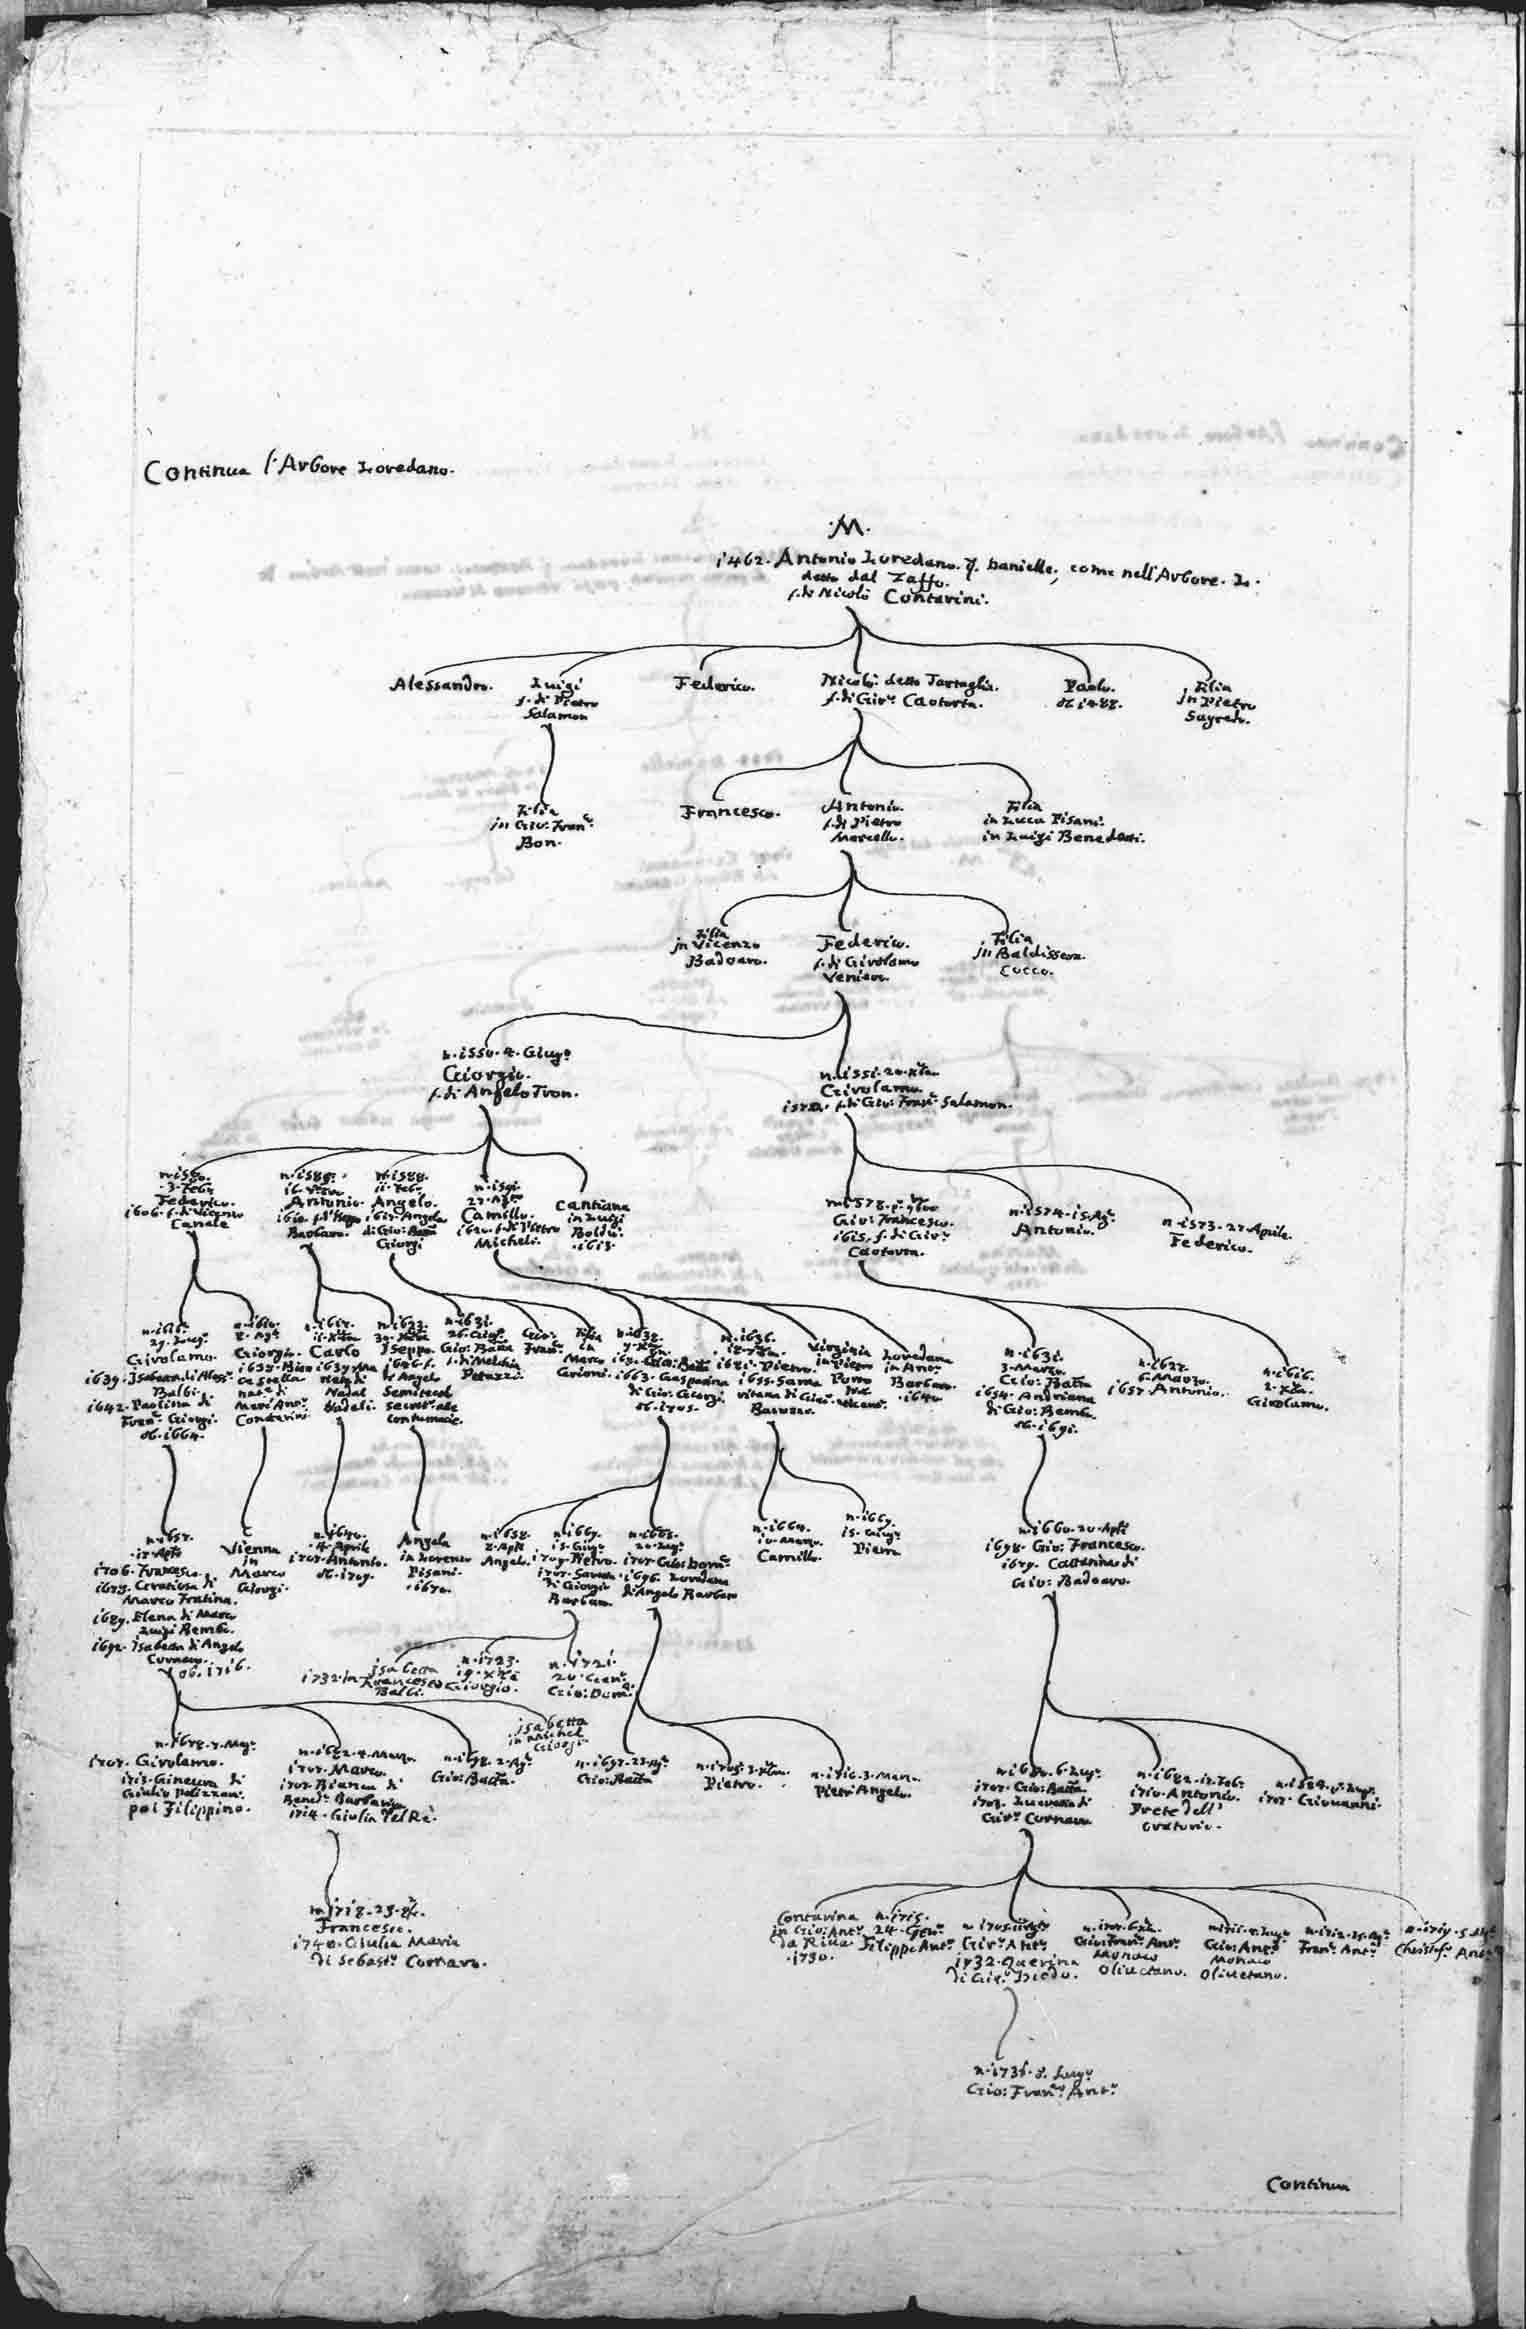 Continua l'Arbore Loredano.
.M.
1462. Antonio Loredano. q. Danielle, come nell'Arbore. L.
detto dal Zaffo.
f. di Nicolò Contarini.
Alessandro.
Luigi
f. di Pietro
Salamon
Federico.
Nicolò detto Tartaglia.
f. di Gir.º Caotorta.
Paolo.
ob. 1488.
Filia
in Pietro
Sagredo.
Filia
in Gio: Fran.º
Bon.
Francesco.
Antonio.
f. di Pietro
Marcello.
Filia
in Luca Pisani.
in Luigi Benedetti.
Filia
in Vicenzo
Badoaro.
Federico.
f. di Girolamo
Venier.
Filia
in Baldissera
Cocco.
n. 1550. 4. Giug.º
Giorgio.
f. di Angelo Tron.
n. 1551. 20. Xbre
Girolamo.
f. di Gio: Fran.º Salamon.
3. Feb.º
Federico.
1606. f. di Vicenzo
Canale
n. 1588.
Antonio.
Barbaro.
n. 1588.
11. Feb.º
Angelo.
1615. Angela
di Gio: Batta
Giorgi
n. 1591.
Camillo.
1620. f. di Pietro
Michel.
Cantiana
in Luigi
Boldù.
1613.
Gio: Francesco.
1615. f. di Gir.º
Caotorta.
n. 1574. 15. Ag.º
Antonio.
n. 1573. 27. Aprile.
Federico.
Girolamo.
1639. Isabetta di Aless.º
Balbi.
1642. Paolina di
Fran.º Giorgi.
ob. 1664.
Giorgio.
Mari'Ant.º
Contarini
Carlo
Nadal
Nadali.
n. 1623.
Iseppo.
di Angelo
Semitecolo
n. 1631.
Gio: Batta
f. di Melchior
Petazzi.
Gio:
Fran.º
Filia
in
Marco
Grioni.
1663. Gasparina
di Gio: Giorgi
ob. 1705.
n. 1636.
Pietro.
1655. Sama
ritana di Giac.º
Barozzo.
Virginia
in Pietro
Porto
Loredana
in Ant.º
Barbaro.
1640.
n. 1631.
3. Marzo.
Gio: Batta
1654. Andriana
di Gio: Bembo.
ob. 1691.
n. 1622.
6. Marzo.
1657. Antonio.
n. 1616.
2. Xbre.
Girolamo.
17. Aple
1706. Francesco.
1678. Gratiosa di
Marco Fratina.
1689. Elena di Marc.º
Luigi Bembo.
1692. Isabetta di Angelo
Cornaro.
ob. 1716.
Vienna
in
Marco
Giorgi.
n. 1640.
4. Aprile
1707. Antonio.
ob. 1709.
Angela
in Lorenzo
Pisani.
1670.
n. 1658.
8. Aple
Angelo.
n. 1667.
15. Giug.º
1707. Pietro.
di Giorgio
Barbaro.
1707. Gio: Dom.º
1696. Loredana
di Angelo Barbaro
n. 1664.
10. Marzo.
Camillo.
n. 1667.
15. Giug.º
Piero
n. 1660. 20. Aple
1698. Gio: Francesco.
1679. Cattarina di
Gio: Badoaro.
Isabetta
1732. in Francesco
Balbi.
n. 1723.
19. Xbre
Giorgio.
n. 1721.
20. Gen.º
Gio: Dom.º
Isabetta
in Michel
Giorgi
n. 1678. 7. Mag.º
1707. Girolamo.
1713. Ginevra di
Giulio Polizzon.
poi Filippino.
n. 1682. 4. Marzo
1707. Marco.
1707. Bianca di
Bened.º Barbarigo
1714. Giulia Dal Rè.
n. 1698. 2. Ag.º
Gio: Batta.
n. 1697. 23. Ag.º
Gio: Batta
n. 1705. 3. Xbre.
Pietro.
n. 1716. 3. Marz.
Pietr'Angelo.
n. 1680. 6. Lug.º
1707. Gio: Batta.
1703. Lucretia di
Gir.º Cornaro
n. 1682. 12. Feb.º
1710. Antonio.
Prete dell'
oratorio.
1707. Giovanni.
n. 1718. 23. 8bre.
Francesco.
1740. Giulia Maria
di Sebast.º Cornaro.
Contarina
in Gio: Ant.º
da Riva
1730.
n. 1715.
24. Gen.º
Filippo Ant.º
Gir.º Ant.º
1732. Querina
di Gir.º Diedo.
Gio: Fran.º Ant.º
Monaco
Olivetano.
Gio: Ant.º
Monaco
Olivetano.
Fran.º Ant.º
n. 1719. 5. Ag.º
Christof.º Ant.º
n. 1736. 8. Lug.º
Gio: Fran.º Ant.º
Continua